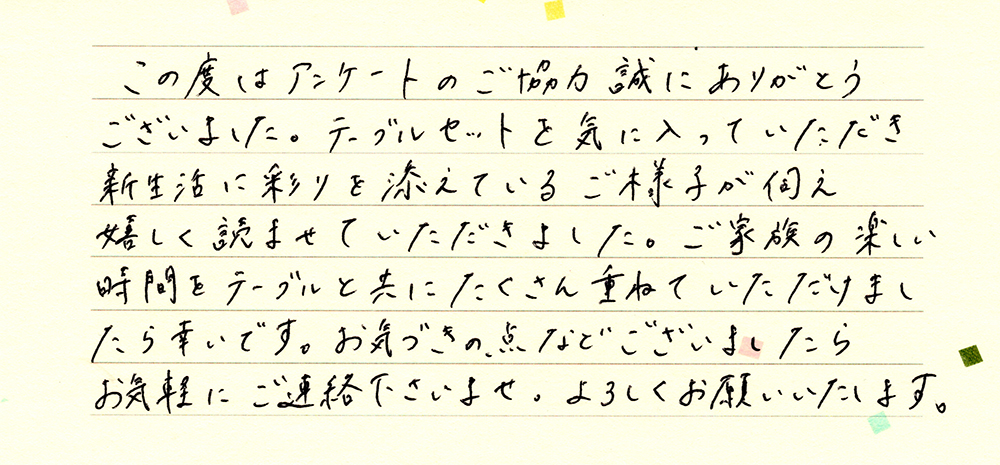 この度はアンケートのご協力誠にありがとう
ございました。テーブルセットを気に入っていただき
新生活に彩りを添えているご様子が伺え
嬉しく読ませていただきました。ご家族の楽しい
時間をテーブルと共にたくさん重ねていただけまし
たら幸いです。お気づきの点などございましたら
お気軽にご連絡下さいませ。よろしくお願いいたします。